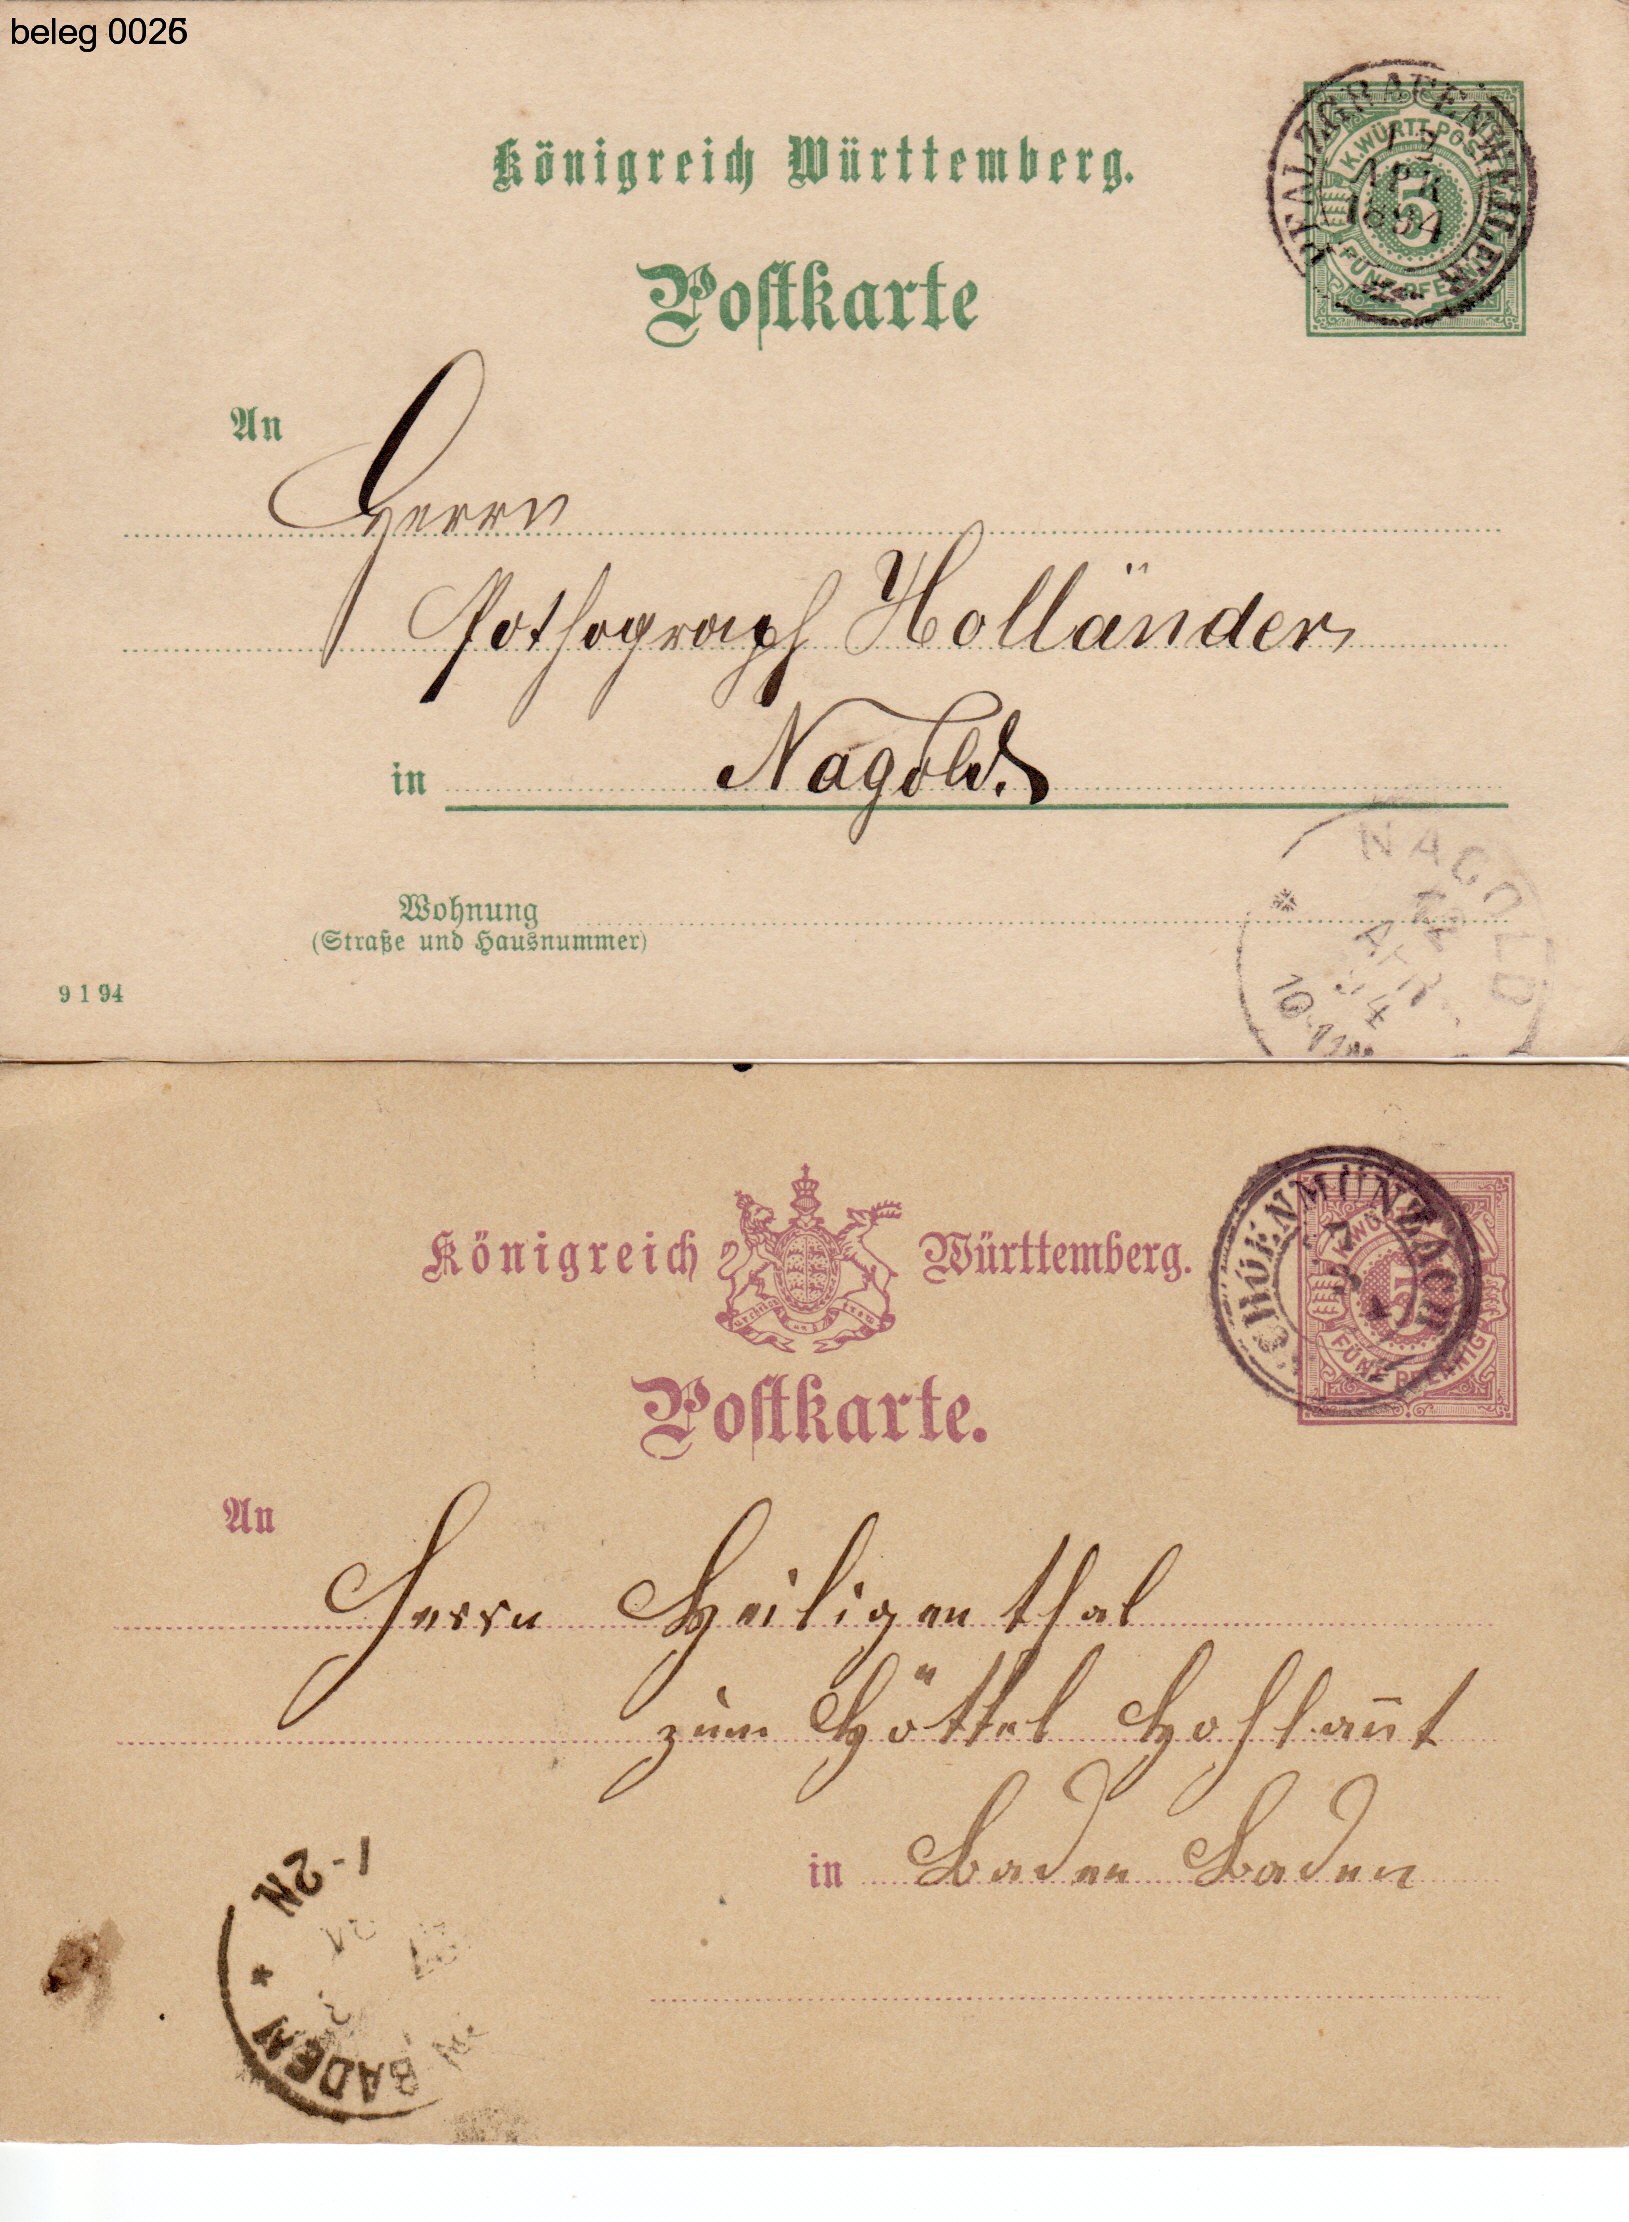 beleg 0026
Königreich Württemberg.
PFALZGRAFENWEILER
12
APR
1894
K. WÜRTT. POST
5
FÜNF PFENNIG
Postkarte
An
Herrn
Pothograph Holländer
in Nagold.
Wohnung
(Straße und Hausnummer)
NAGOLD
12
APR
94
10-11
9 1 94
Königreich Württemberg.
SCHÖNMÜNZACH
5
FÜNF PFENNIG
Postkarte.
An
Herrn Heiligenthal
zum Höttel Hohlant
in Baden Baden
1-2N
BADEN